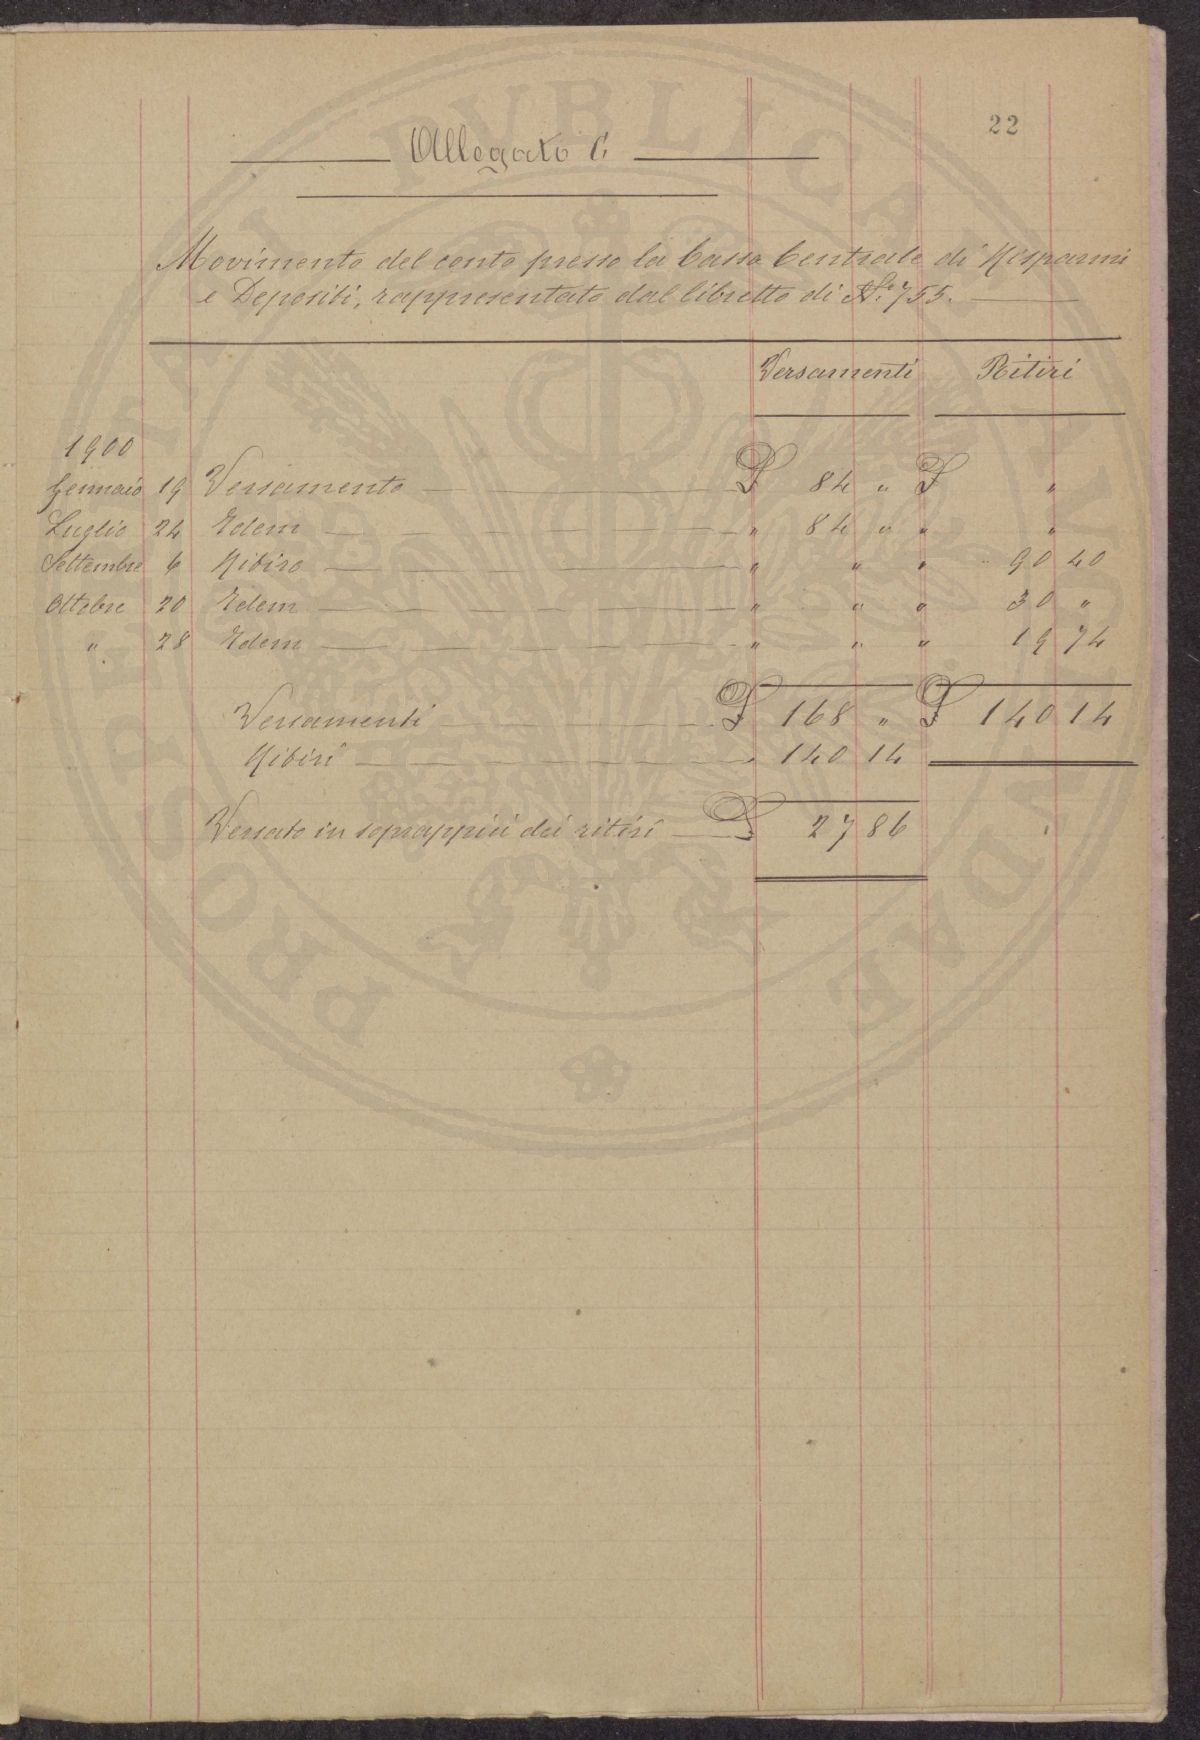 22
Allegato C
Movimento del conto presso la Cassa Centrale di Risparmi
e Depositi, rappresentato dal libretto di No. 755.
Versamenti Ritiri
1900
Gennaio 19 Versamento £ 84 " £ "
Luglio 24 Idem " 84 " " "
Settembre 6 Ritiro " " " 90 40
Ottobre 20 Idem " " " 30 "
" 28 Idem " " " 19 74
Versamenti £ 168 " £ 140 14
Ritiri " 140 14
Versato in soprappiù dei ritiri £ 27 86
PROSPERITAS PUBLICA